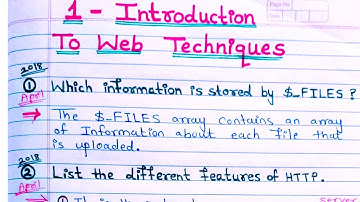 1 - Introduction
To Web Techniques
2018
① Which information is stored by $_FILES ?
April
→ The $_FILES array contains an array
of Information about each file that
is uploaded.
2018
② List the different features of HTTP.
April
server